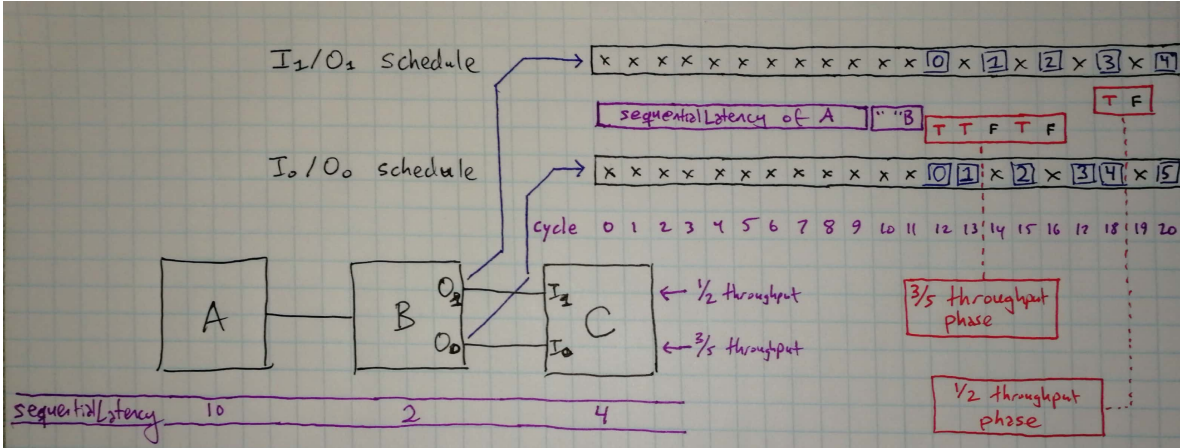 I1/O1 schedule
x x x x x x x x x x x x 0 x 1 x 2 x 3 x 4
sequentialLatency of A " " B
T F
T T F T F
I0/O0 schedule
x x x x x x x x x x x x 0 1 x 2 x 3 4 x 5
cycle 0 1 2 3 4 5 6 7 8 9 10 11 12 13 14 15 16 17 18 19 20
A
B
O1
O0
I1
I0
C
← 1/2 throughput
← 3/5 throughput
3/5 throughput
phase
1/2 throughput
phase
sequentialLatency 10 2 4